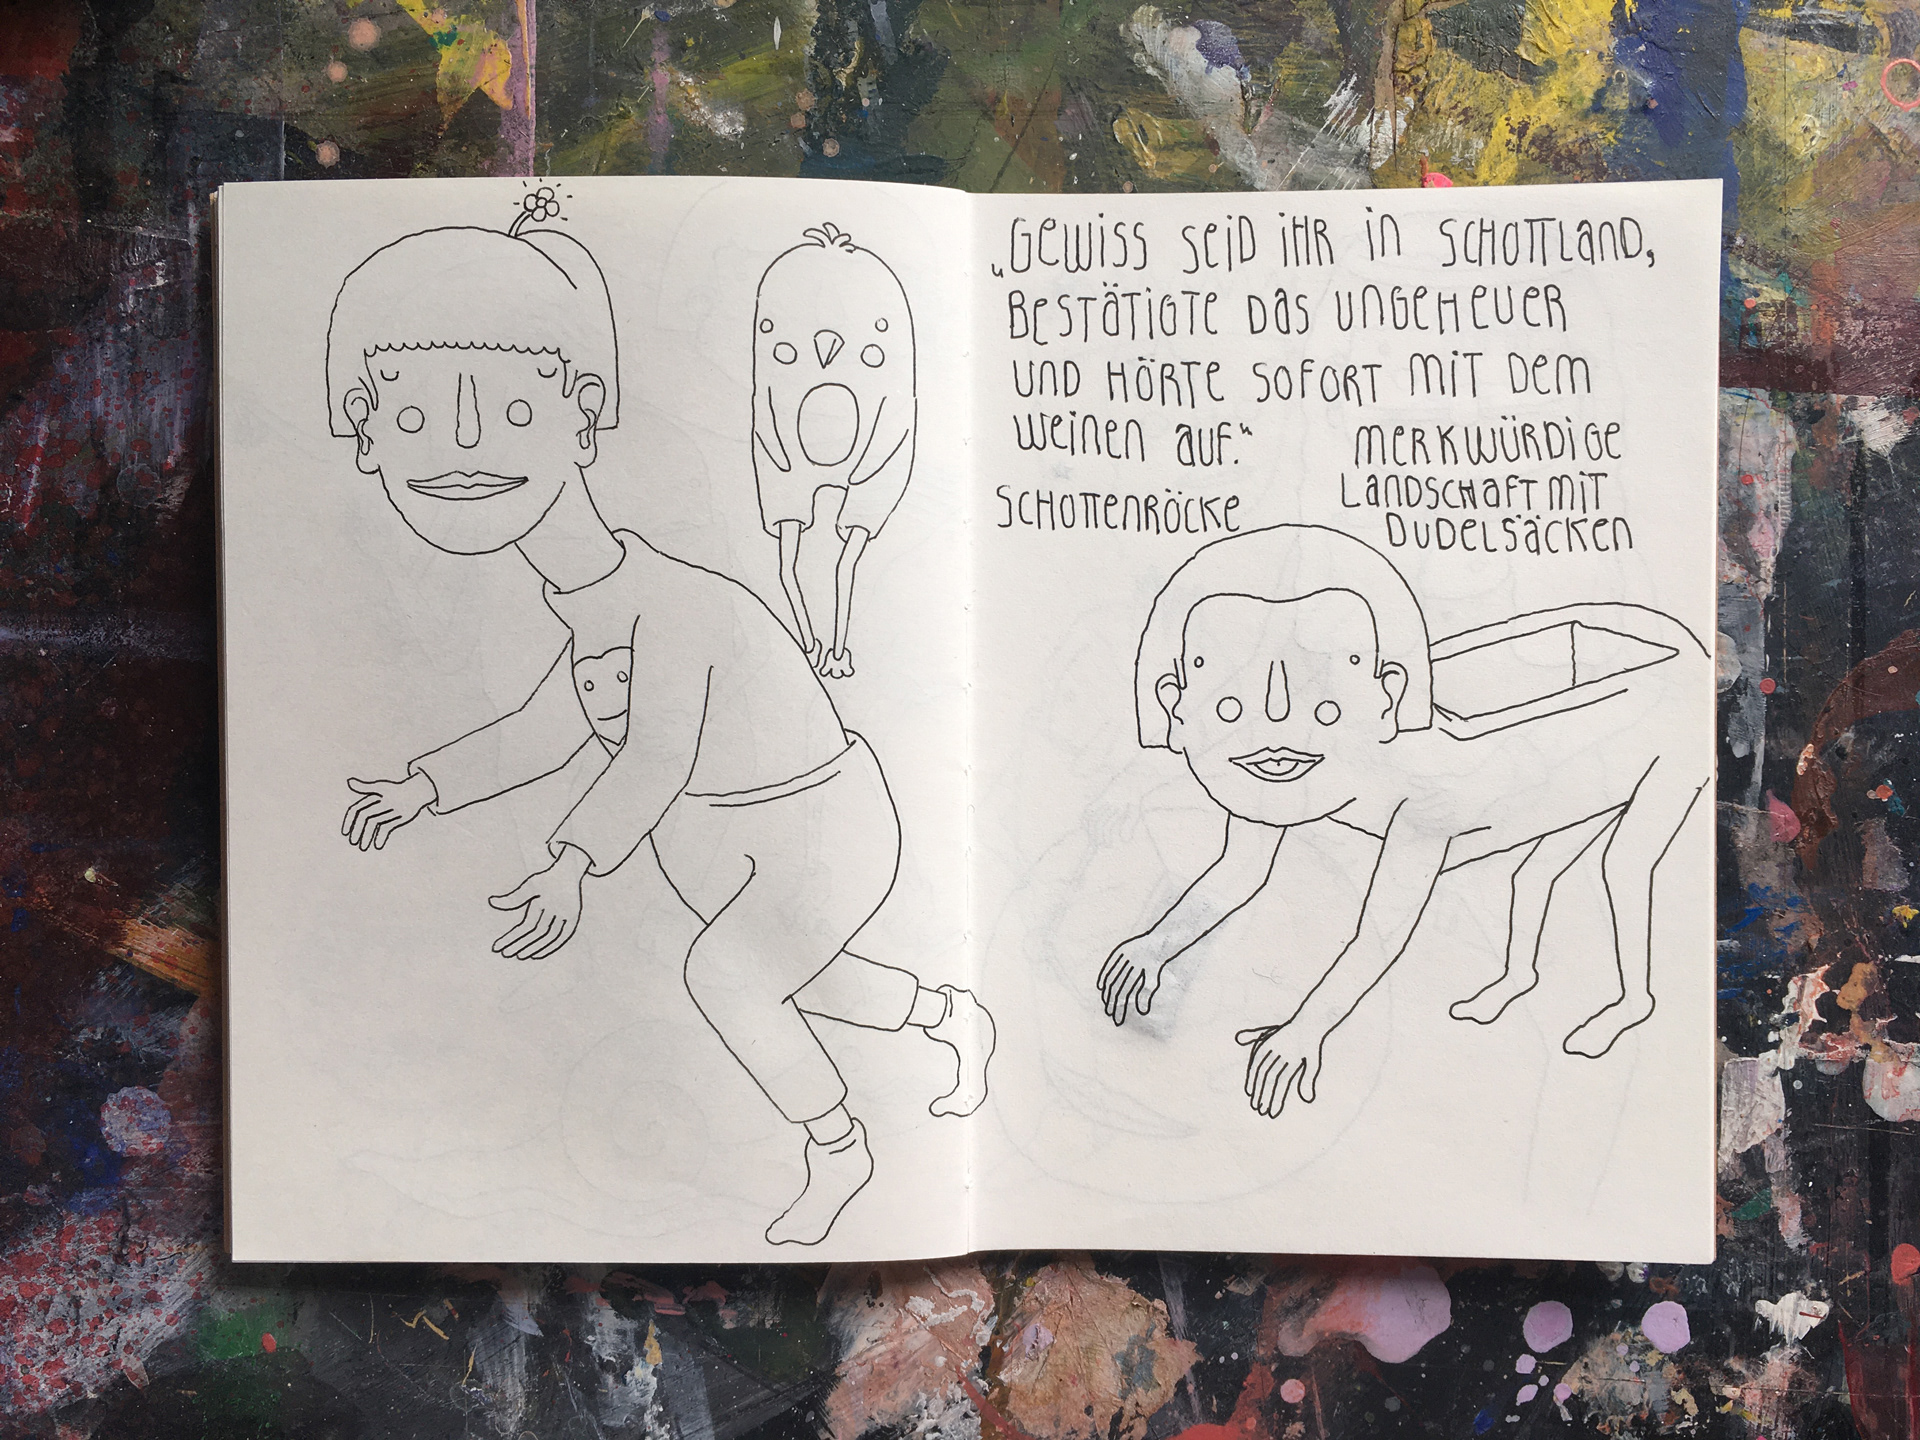 „Gewiss seid ihr in Schottland,
bestätigte das Ungeheuer
und hörte sofort mit dem
Weinen auf.“
Schottenröcke
merkwürdige
Landschaft mit
Dudelsäcken